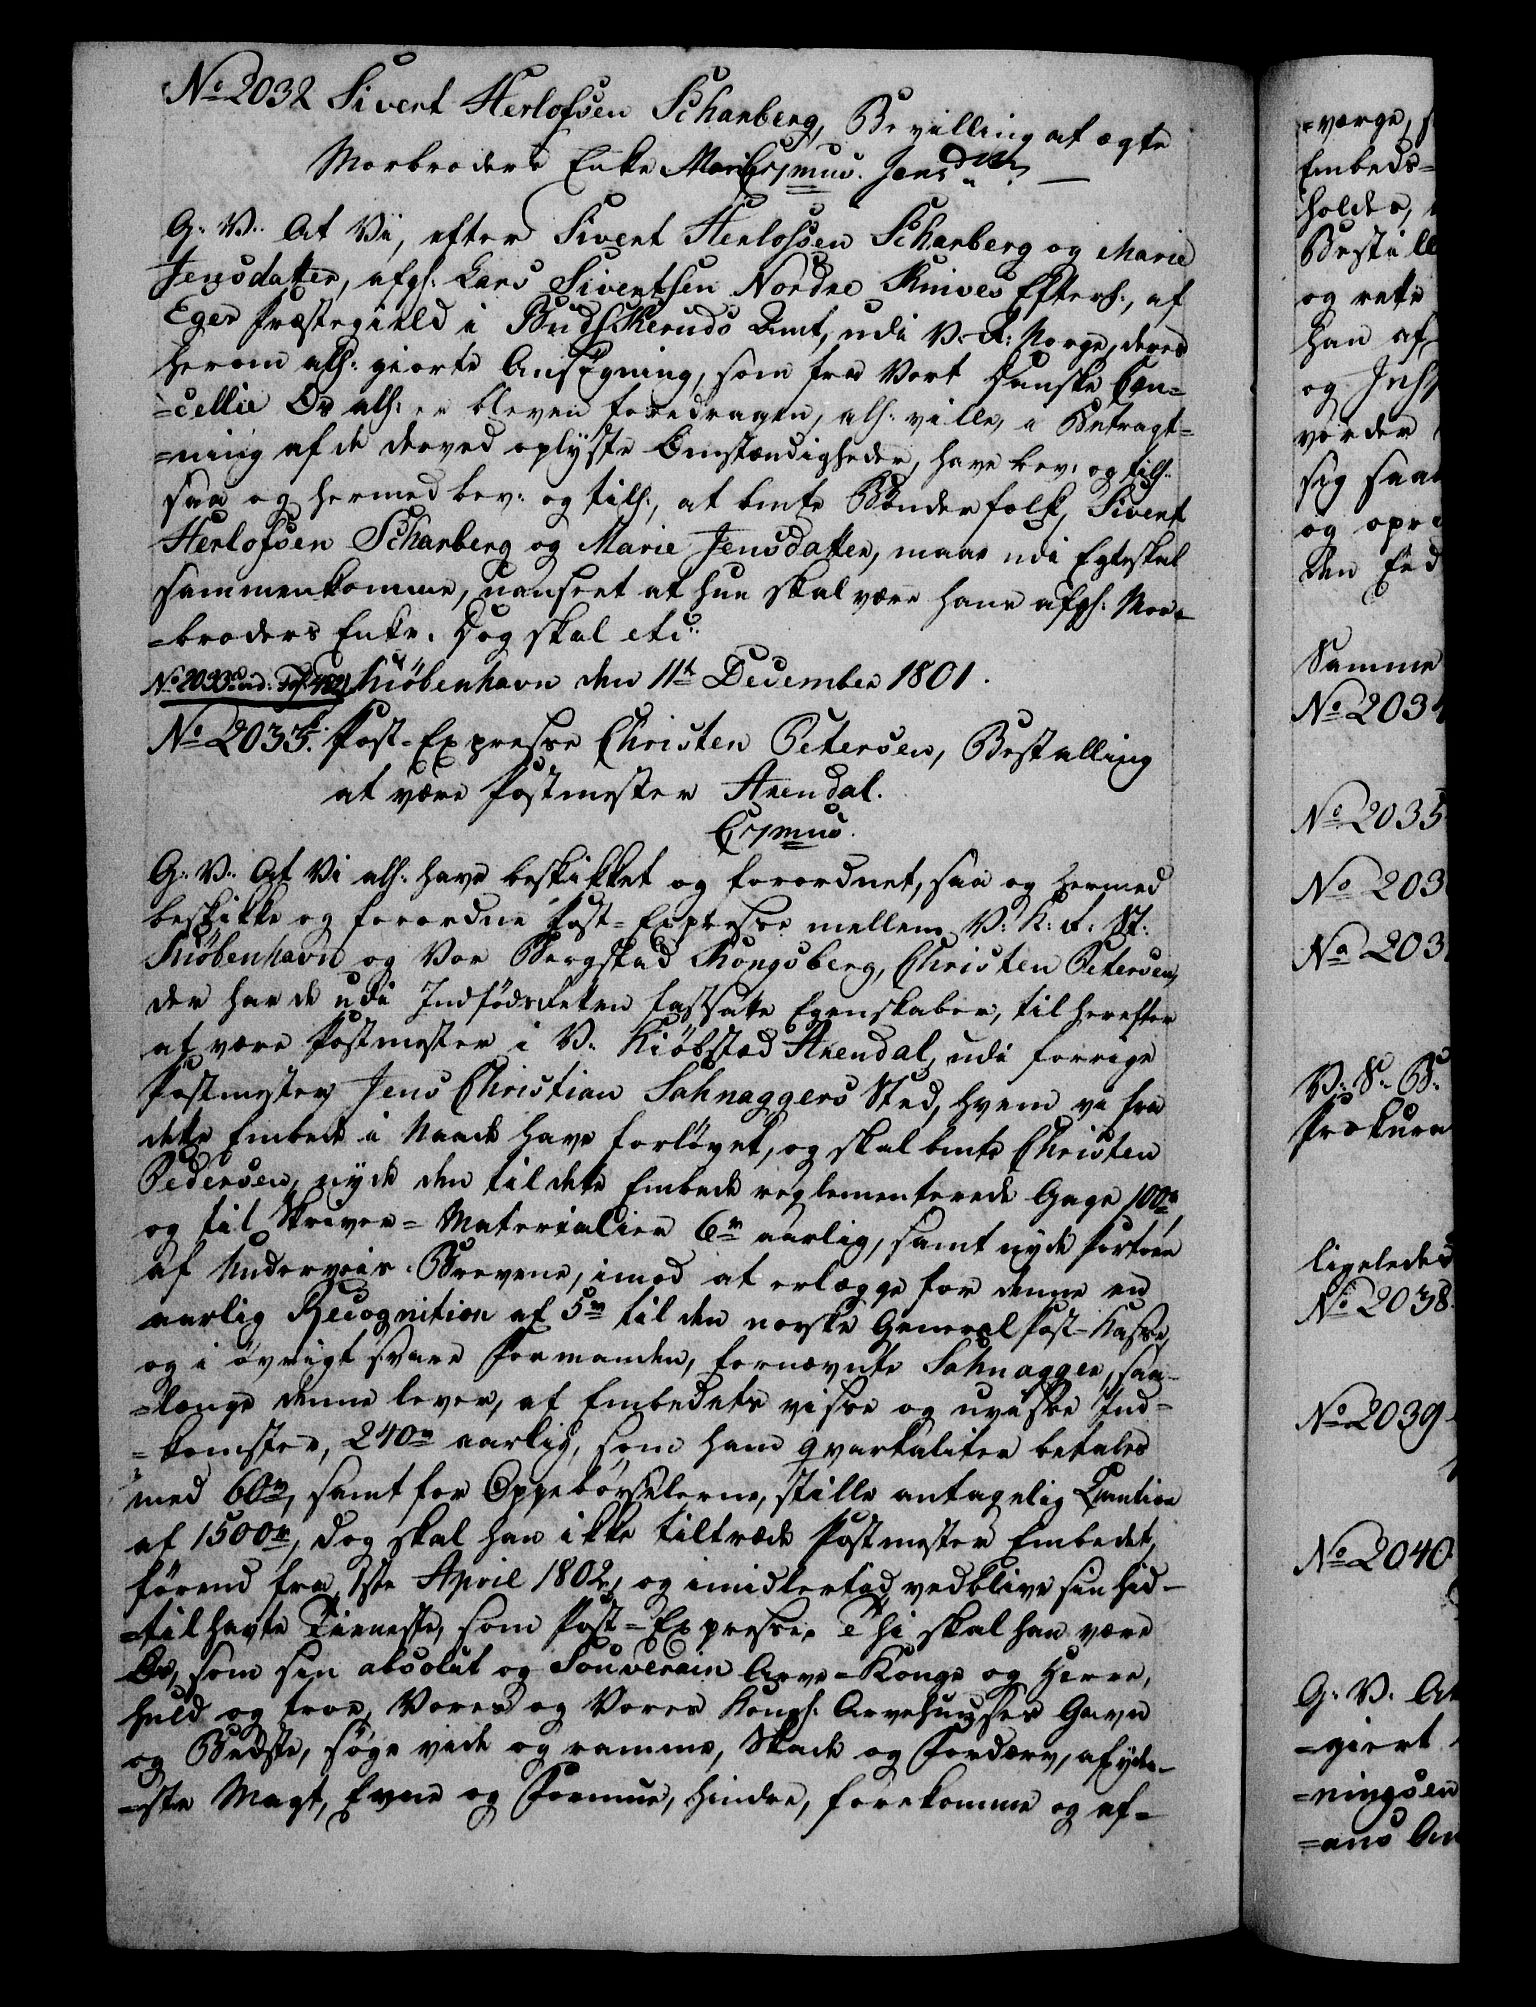 No 2032 Sivert Herlofsen Scharberg, Bevilling at ægte
Morbroders Enke Marie Jensd.
G: V:. At Vi, efter Sivert Herlofsen Scharberg og Marie
Jensdatter, afgl: Lars Sivertsen Nordre Knives Efterl:, af
Eger Præstegield i Budskeruds Amt, udi V: R: Norge, deres
herom all: giorte Ansøgning, som fra Vort Danske Can-
=cellie Os all: er bleven foredragen, all: ville, i Betragt=
=ning af de derved oplyste Omstændigheder, have bev: og till:
saa og hermed bev: og till:, at bmte Bønderfolk, Sivert
Herlofsen Scharberg og Marie Jensdatter, maae udi Egteskab
sammenkomme, uanseet at hun skal være hans afgl: Mor=
=broders Enke. Dog skal etc:
No 2033 Kiøbenhavn den 11te December 1801.
No 2033. Post-Expresse Christen Petersen, Bestalling
at være Postmester Arendal.
G: V:. At Vi all: have beskikket og forordnet, saa og hermed
beskikke og forordne Post=Expresse mellem V: K: R: St:
Kiøbenhavn og Vor Bergstad Kongsberg, Christen Petersen,
der har de udi Indfødsretten fastsatte Egenskaber, til herefter
at være Postmester i V: Kiøbstad Arendal, udi forrige
Postmester Jens Christian Sahnaggers Sted, hvem vi fra
dette Embede i Naade have forløvet, og skal bmte Christen
Pedersen, nyde den til dette Embede reglementerede Gage 100rd,
og til Skriver=Materialier 6rd aarlig, samt nyde Portoen
af Underveis-Brevene, imod at erlægge for denne en
aarlig Recognition af 5rd til den norske General Post-Kasse,
og i øvrigt svare Formanden, fornævnte Sahnagger, saa-
=længe denne lever, af Embedets visse og uvisse Ind=
=komster, 240rd aarlig, som ham qvartaliter betales
med 60rd, samt for Oppebørslerne, stille antagelig Caution
af 1500rd, dog skal han ikke tiltræde Postmester Embedet,
førend fra 1ste April 1802, og imidlertid vedblive sin hid=
=tilhavte Tieneste, som Post=Expresse. Thi skal han være
Os, som sin absolut og Souverain Arve=Konge og Herre,
huld og troe, Vores og Vores Kongl: Arvehuuses Gavn
og Bedste, søge vide og ramme, Skade og Fordærv, af yder=
=ste Magt, Evne og Formue, hindre, forekomme og af=
=værge,
Embeds=
holder,
Bestill
og rette
han af
og
vorder
sig saa
og opre
den Eed
Samme
No 203
No 2035
No 203
No 203
V: S: B:
Prokura
ligeledes
No 2038.
No 2039
No 2040
G: V: At
=giort
=ningsen
=ans An